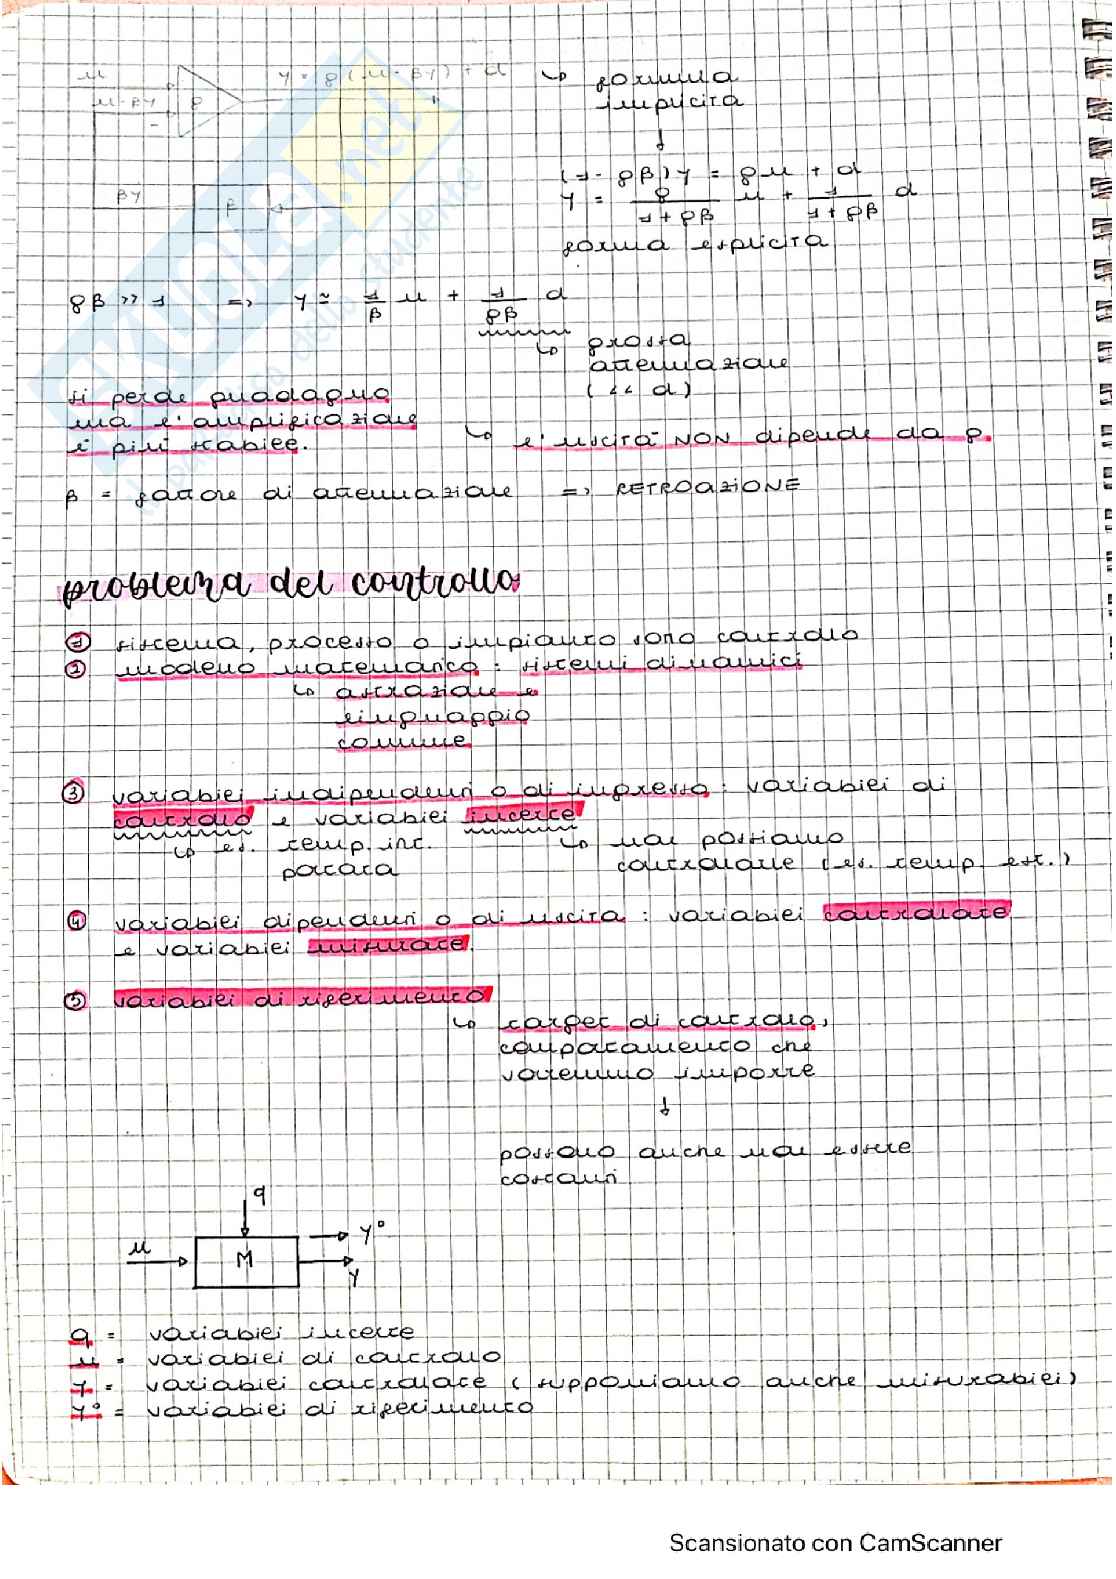 u
y = ρ(u - βy) + d ↳ formula
u-βy ρ implicita
-
(1 - ρβ)y = ρu + d
y = ρ/(1+ρβ) u + 1/(1+ρβ) d
βy β
forma esplicita
ρβ >> 1 => y ≃ 1/β u + 1/ρβ d
↳ grossa
attenuazione
(<< d)
si perde guadagno
ma l'amplificazione
è più stabile.
↳ l'uscita NON dipende da ρ.
β = fattore di attenuazione => RETROAZIONE
problema del controllo
① sistema, processo o impianto sono controllo
② modello matematico: sistemi dinamici
↳ astrazione e
linguaggio
comune
③ variabili indipendenti o di ingresso: variabili di
controllo e variabili incerte
↳ es. temp. int. ↳ non possiamo
portata controllare (es. temp. est.)
④ variabili dipendenti o di uscita: variabili controllate
e variabili misurate.
⑤ variabili di riferimento
↳ target di controllo,
comportamento che
vorremmo imporre
possono anche non essere
costanti
q
u M y°
y
q = variabili incerte
u = variabili di controllo
y = variabili controllate (supponiamo anche misurabili)
y° = variabili di riferimento
SKUOLA.net
Scansionato con CamScanner